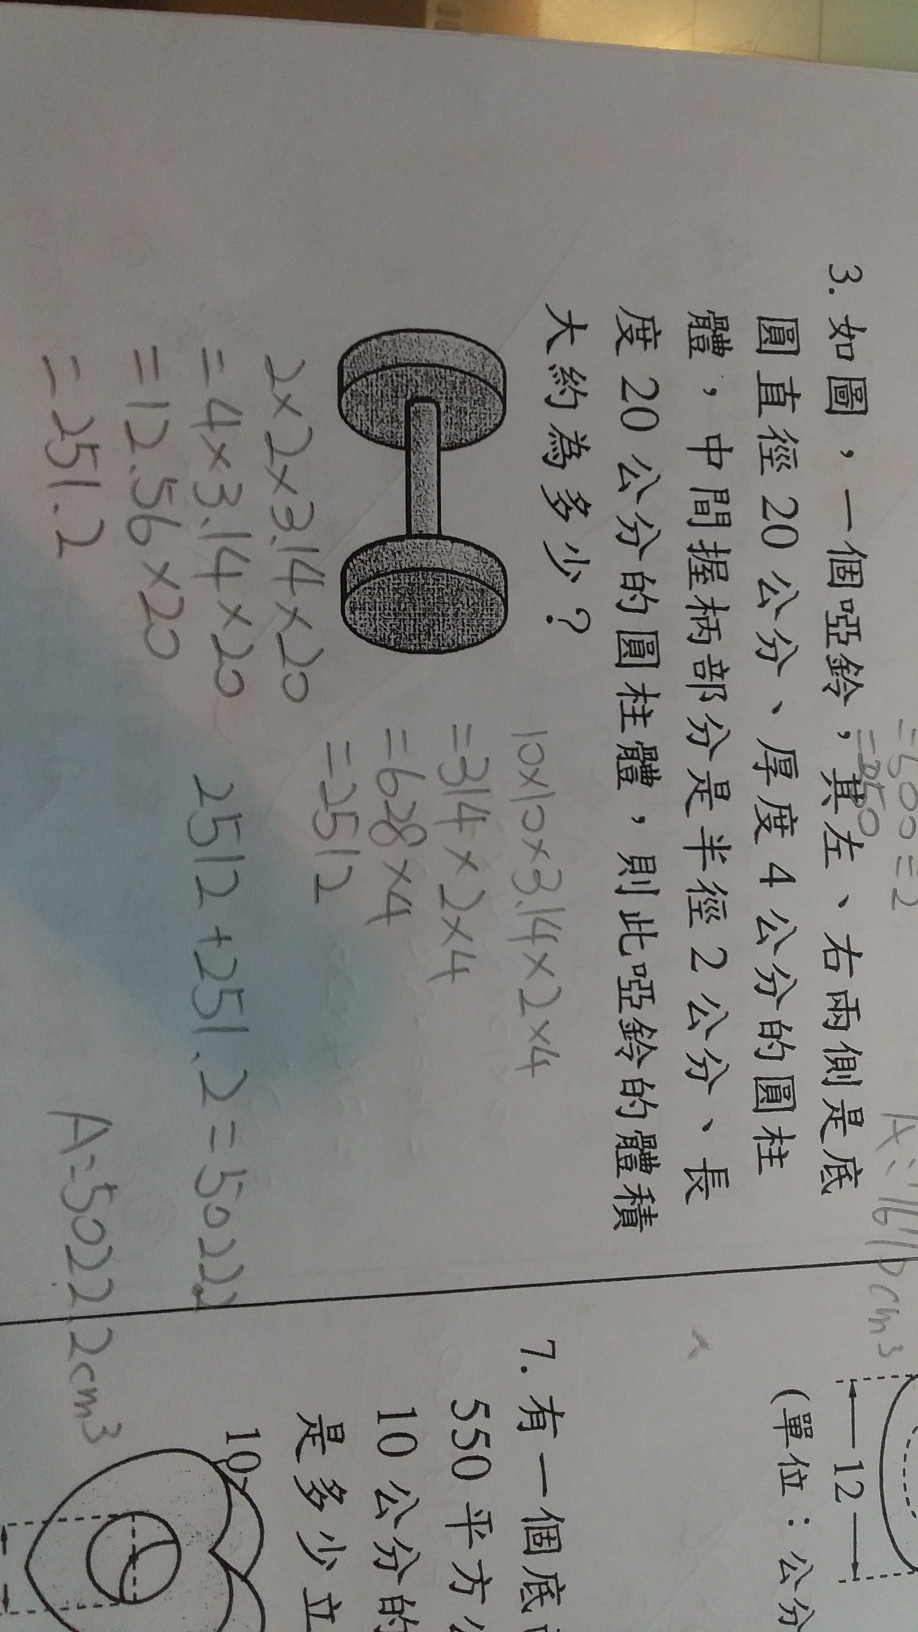 3. 如圖，一個啞鈴，其左、右兩側是底
圓直徑20公分、厚度4公分的圓柱
體，中間握柄部分是半徑2公分、長
度20公分的圓柱體，則此啞鈴的體積
大約為多少？
10×10×3.14×2×4
=314×2×4
=628×4
=2512
2×2×3.14×20
=4×3.14×20
=12.56×20
=251.2
2512+251.2=5022.2
A:5022.2cm³
=500=2
=250
cm³
(單位：公分
12
7. 有一個底
550平方
10公分的
是多少立
10